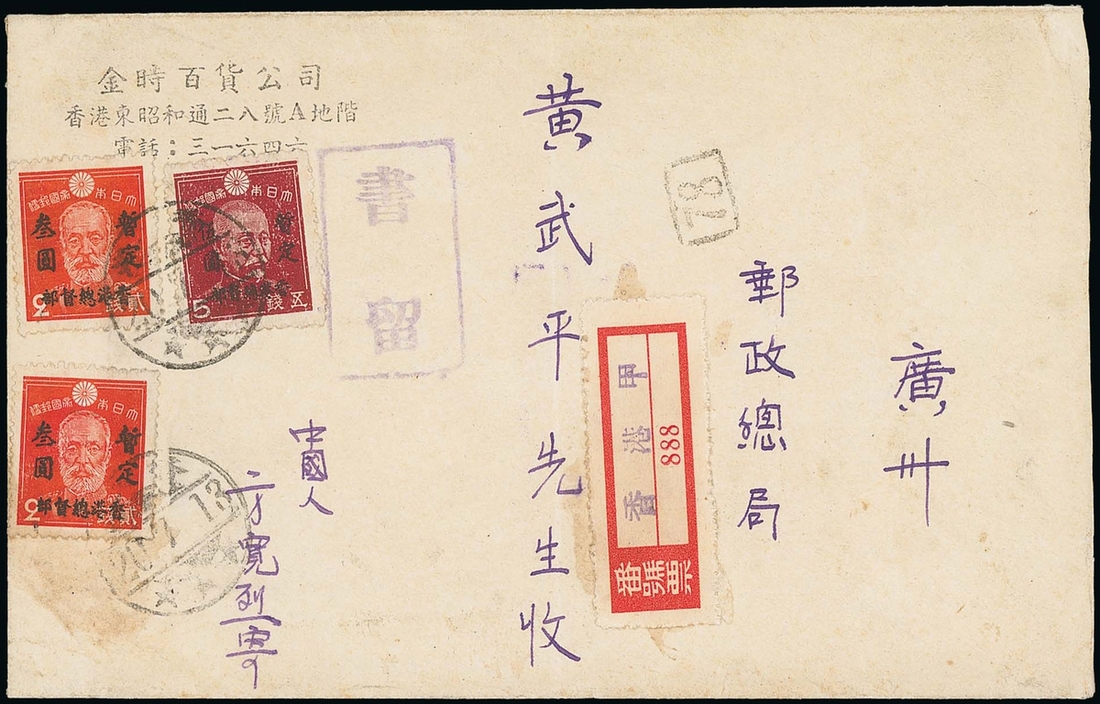 金時百貨公司
香港東昭和通二八號A地階
電話：三一六四六
大日本帝國郵便
暫定
叁圓
香港總督部
貳錢
2
大日本帝國郵便
暫定
香港總督部
五錢
5
大日本帝國郵便
暫定
叁圓
香港總督部
貳錢
2
20.7.13
書留
78
廣州
郵政總局
黃武平先生收
中國人
方寬烈寄
香港甲
888
番號票